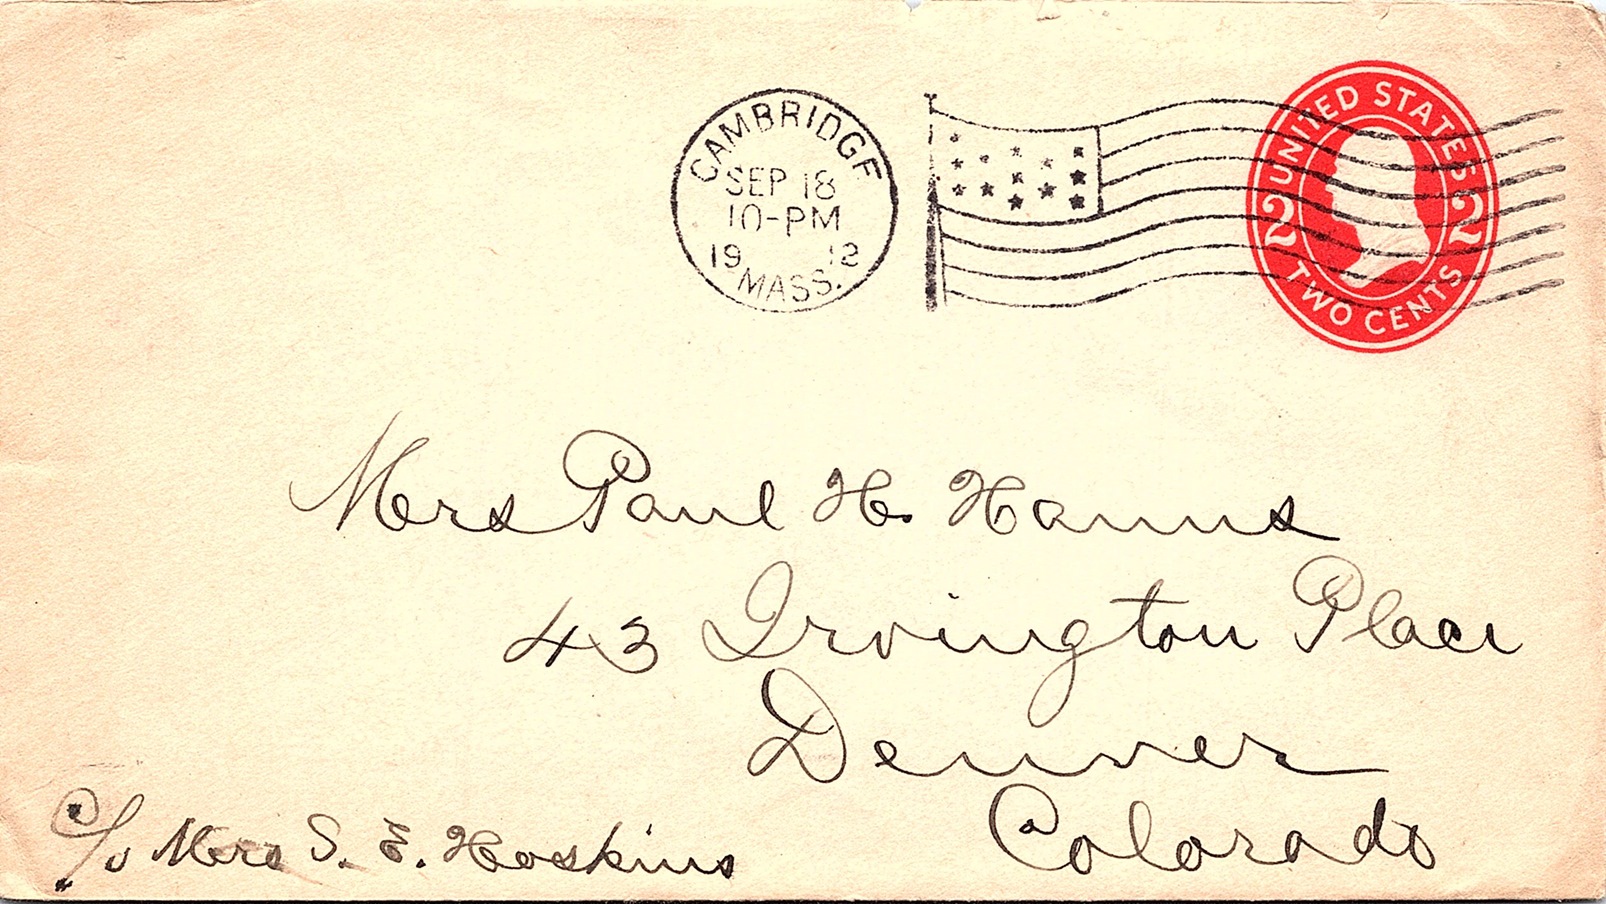 CAMBRIDGE
SEP 18
10-PM
19 12
MASS.
UNITED STATES
2 2
TWO CENTS
Mrs Paul H. Hanus
43 Irvington Place
Denver
Colorado
c/o Mrs S. E. Hoskins